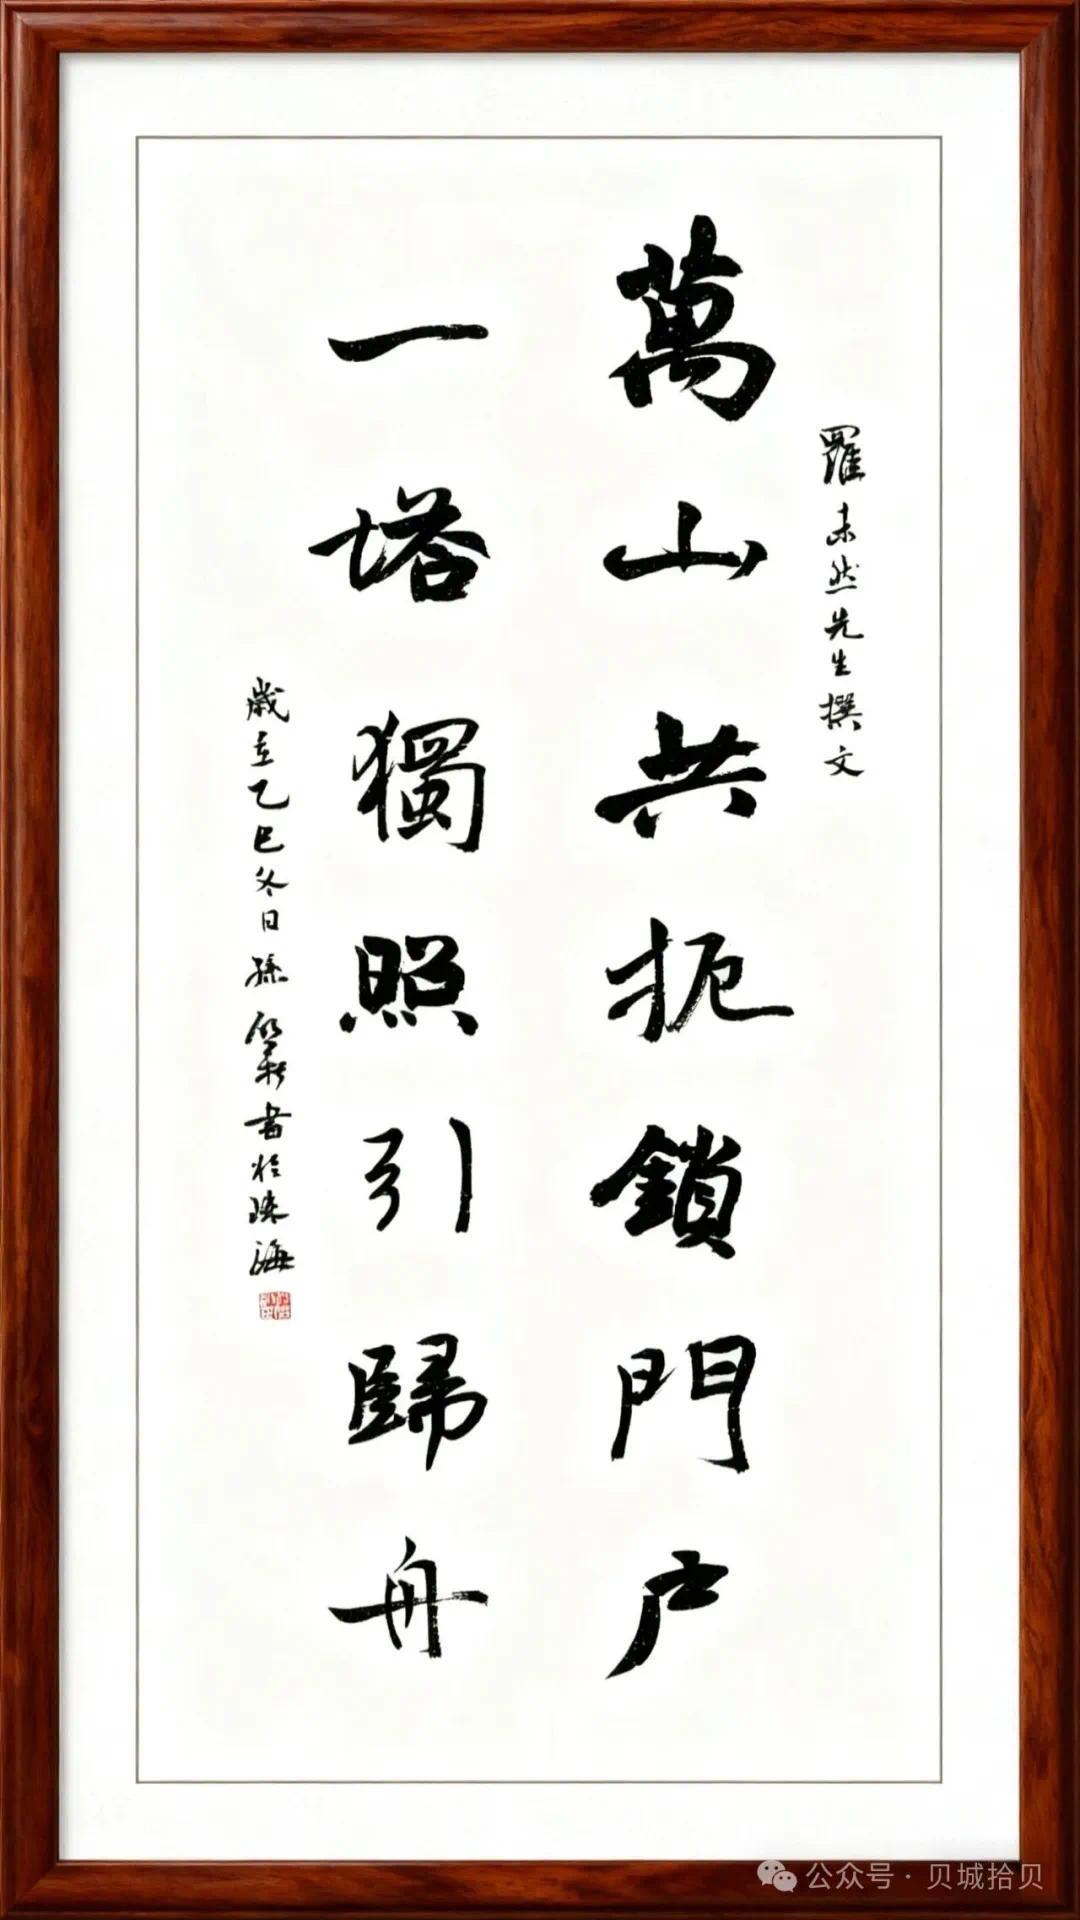 羅未然先生撰文
萬山共扼鎖門户
一塔獨照引歸舟
歲在乙巳冬日孫
書於珠海
公众号·贝城拾贝